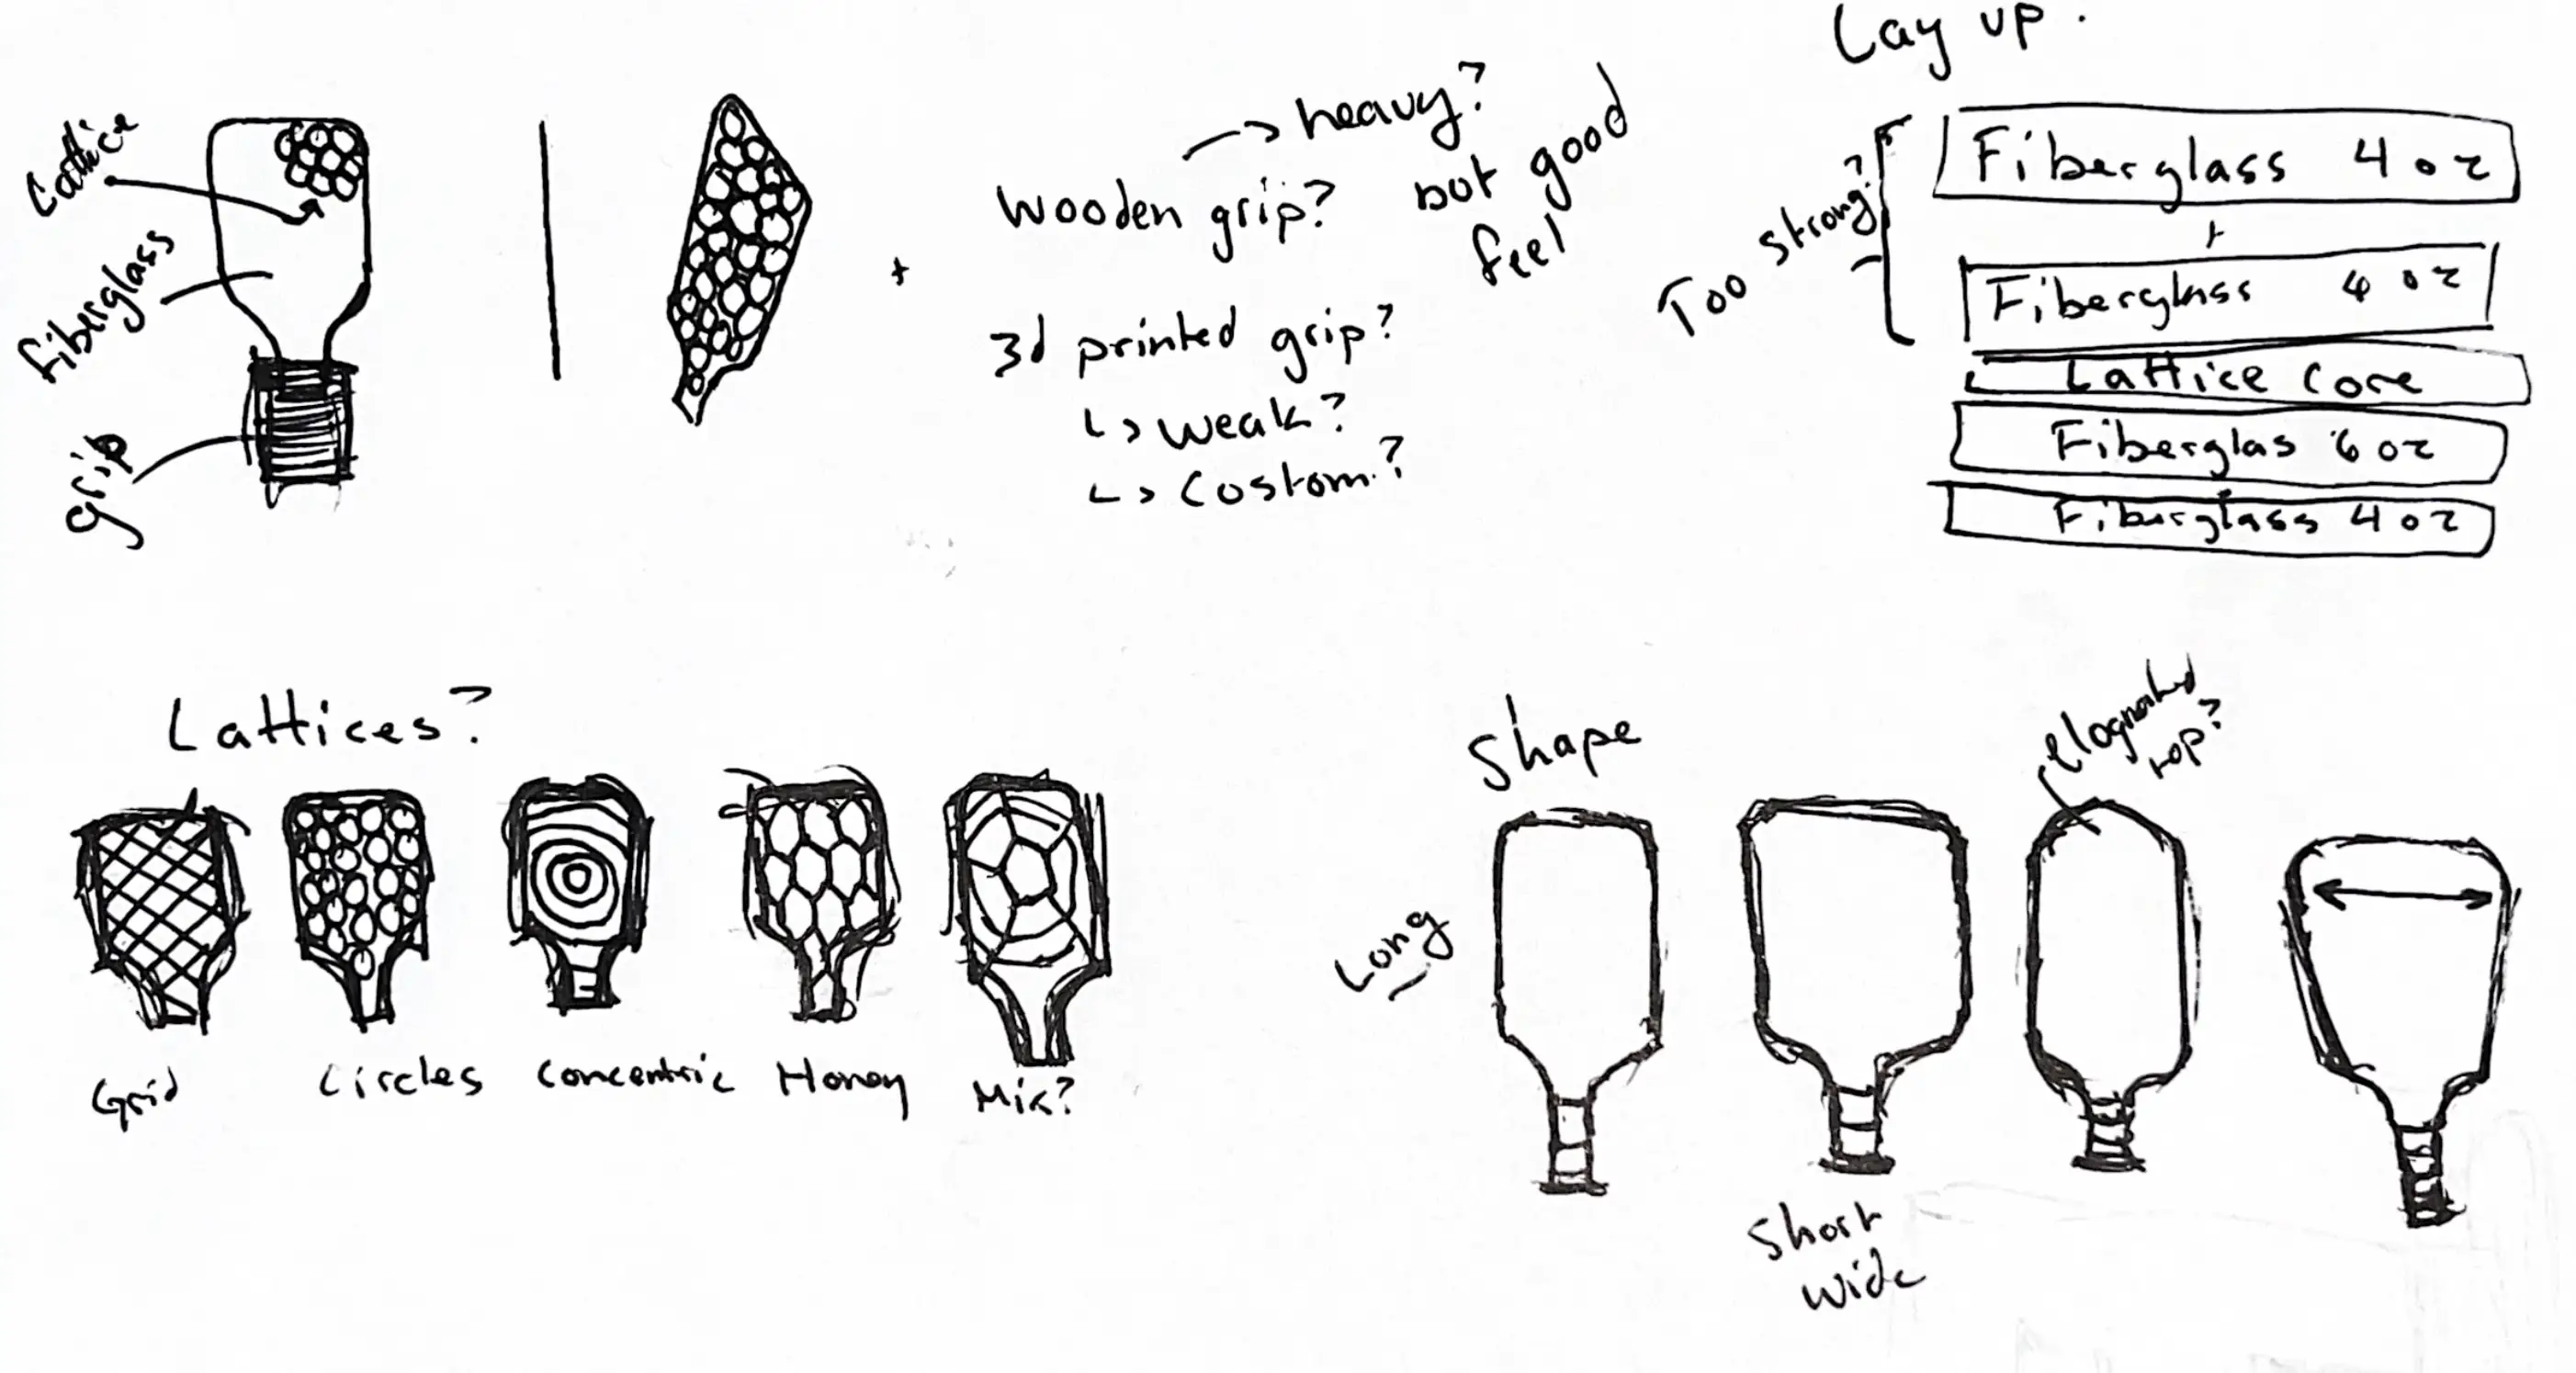 Lattice
Fiberglass
grip
+
wooden grip?
heavy?
but good
feel
3d printed grip?
↳ weak?
↳ Custom?
Lay up.
Too strong?
Fiberglass 4 oz
+
Fiberglass 4 oz
Lattice Core
Fiberglas 6 oz
Fiberglass 4 oz
Lattices?
Grid
Circles
Concentric
Honey
Mix?
Shape
Long
Short
wide
elognated
top?